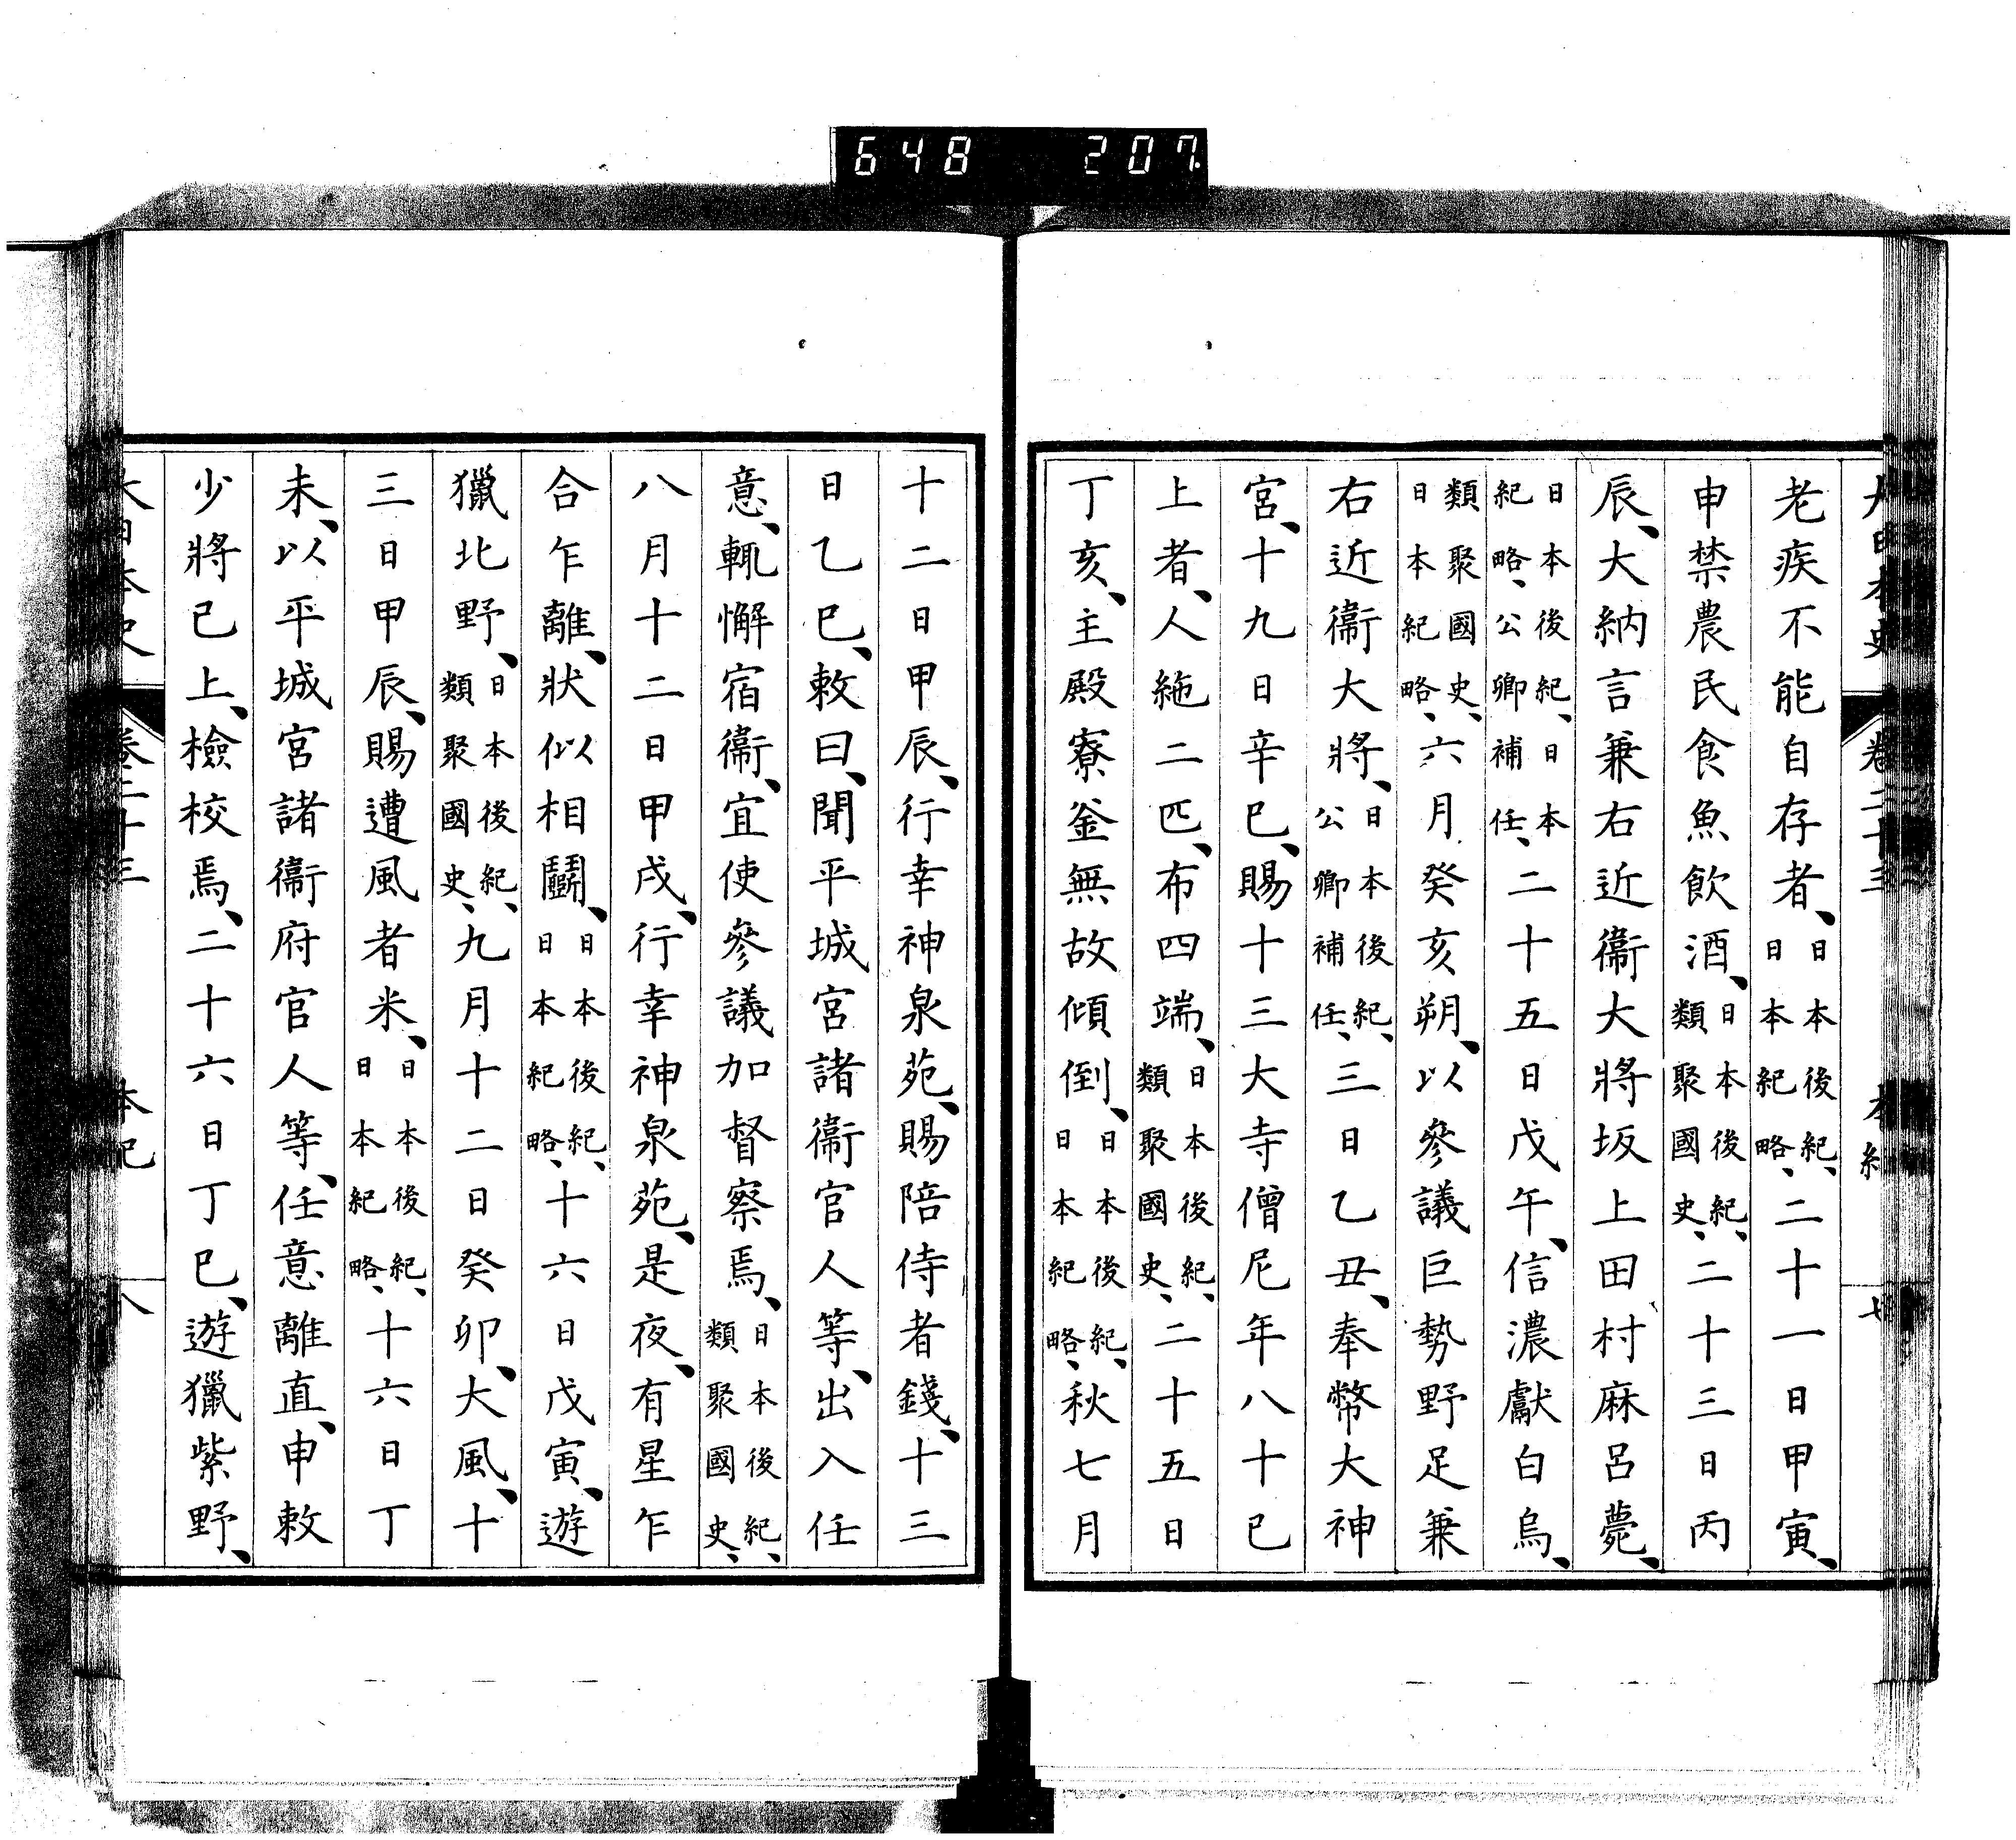 648 207
大日本史 卷二十三 本紀 七
老疾不能自存者、日本後紀、日本紀略、二十一日甲寅、
申禁農民食魚飲酒、日本後紀、類聚國史、二十三日丙
辰、大納言兼右近衞大將坂上田村麻呂薨、
日本後紀、日本紀略、公卿補任、二十五日戊午、信濃獻白烏、
類聚國史、日本紀略、六月癸亥朔、以參議巨勢野足兼
右近衞大將、日本後紀、公卿補任、三日乙丑、奉幣大神
宮、十九日辛巳、賜十三大寺僧尼年八十已
上者、人絁二匹、布四端、日本後紀、類聚國史、二十五日
丁亥、主殿寮釜無故傾倒、日本後紀、日本紀略、秋七月
十二日甲辰、行幸神泉苑、賜陪侍者錢、十三
日乙巳、敕曰、聞平城宮諸衞官人等、出入任
意、輒懈宿衞、宜使參議加督察焉、日本後紀、類聚國史、
八月十二日甲戌、行幸神泉苑、是夜、有星乍
合乍離、狀似相鬭、日本後紀、日本紀略、十六日戊寅、遊
獵北野、日本後紀、類聚國史、九月十二日癸卯、大風、十
三日甲辰、賜遭風者米、日本後紀、日本紀略、十六日丁
未、以平城宮諸衞府官人等、任意離直、申敕
少將已上、檢校焉、二十六日丁巳、遊獵紫野、
大日本史 卷二十三 本紀 八